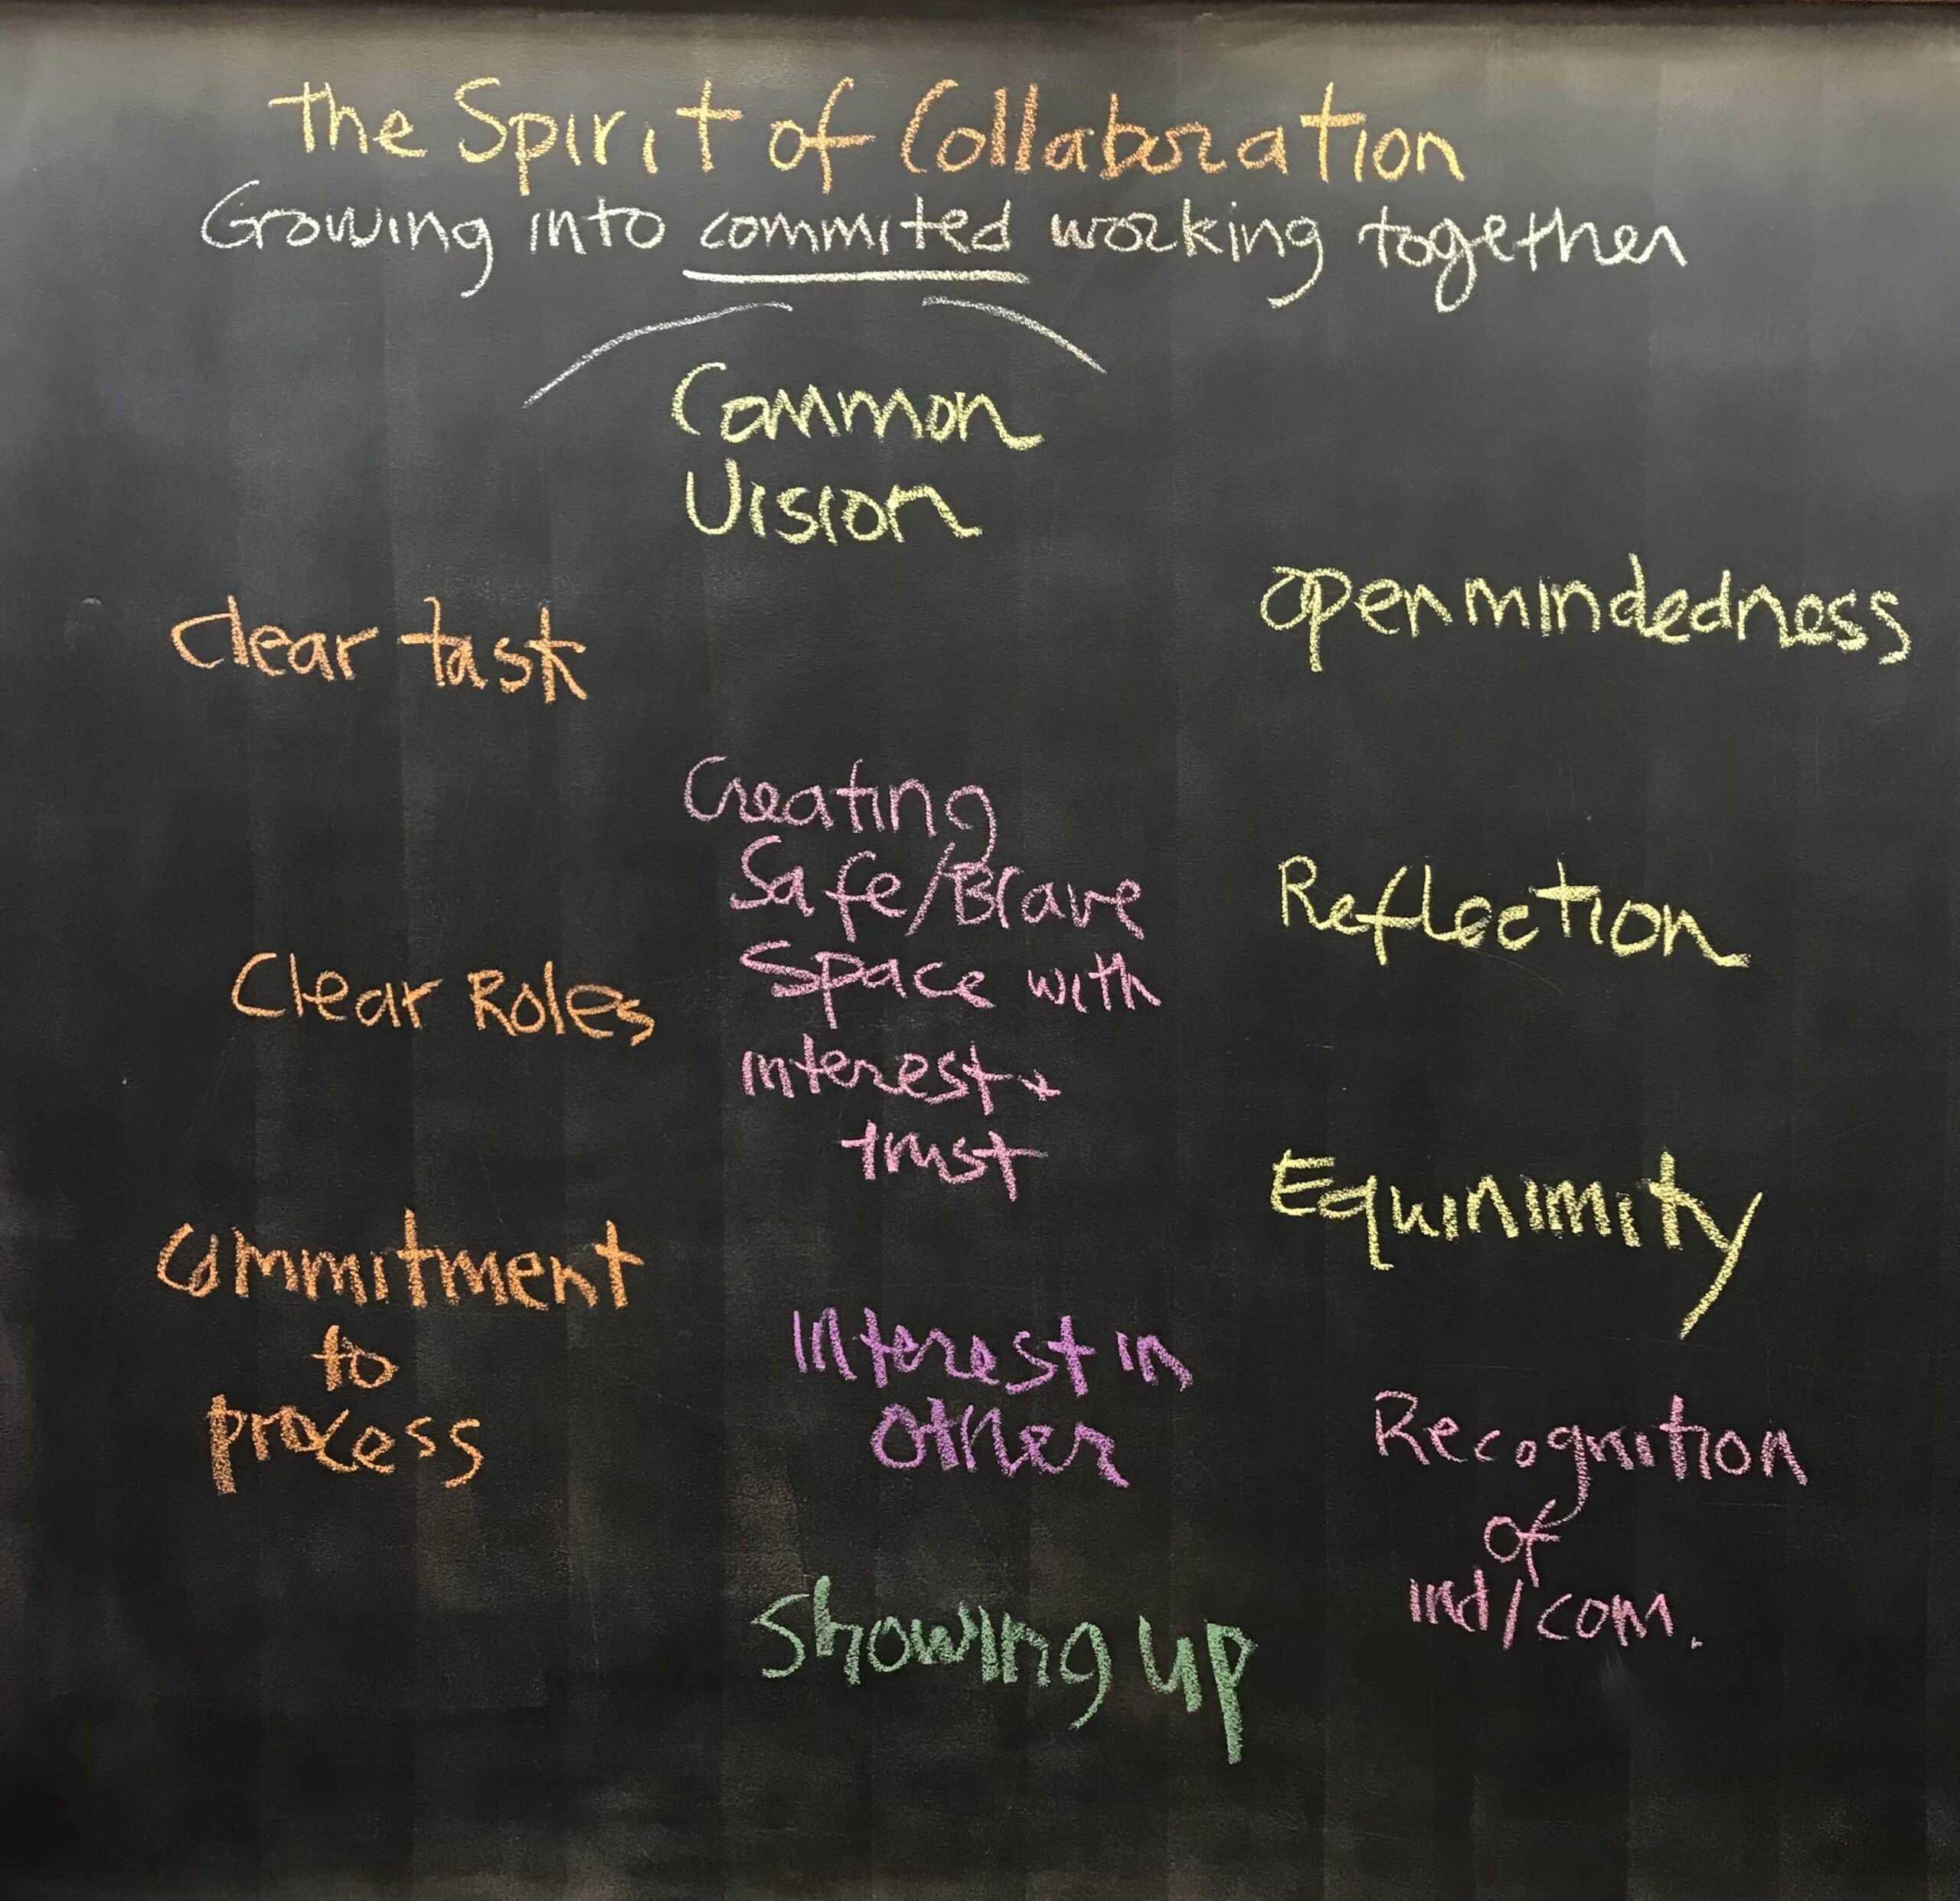 The Spirit of Collaboration
Growing into commited working together
Common
Vision
Clear task
Openmindedness
Creating
Safe/Brave
Space with
interest +
trust
Clear Roles
Reflection
Commitment
to
process
Equinimity
Interest in
other
Recognition
of
ind/com.
Showing up